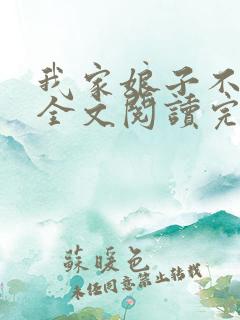 我家娘子不
全文閱讀完
蘇暖色
未經同意禁止转载